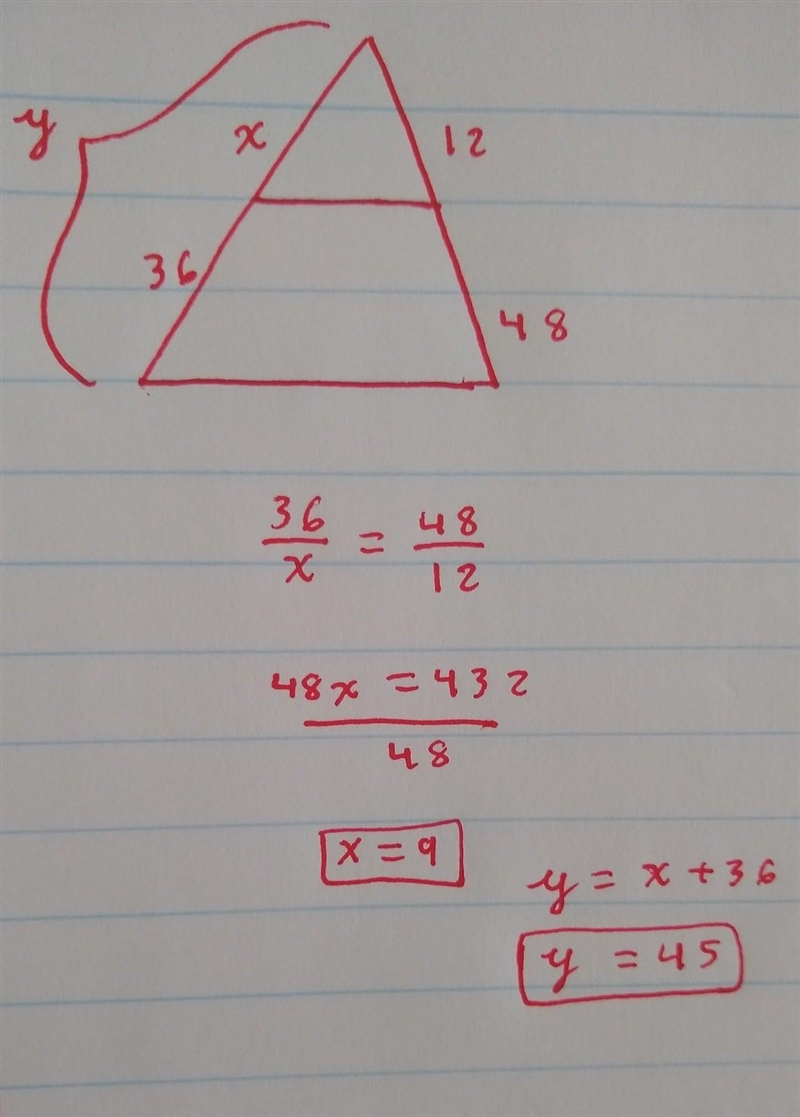 y
x 12
36
48
36/x = 48/12
48x = 432
48
x = 9
y = x + 36
y = 45